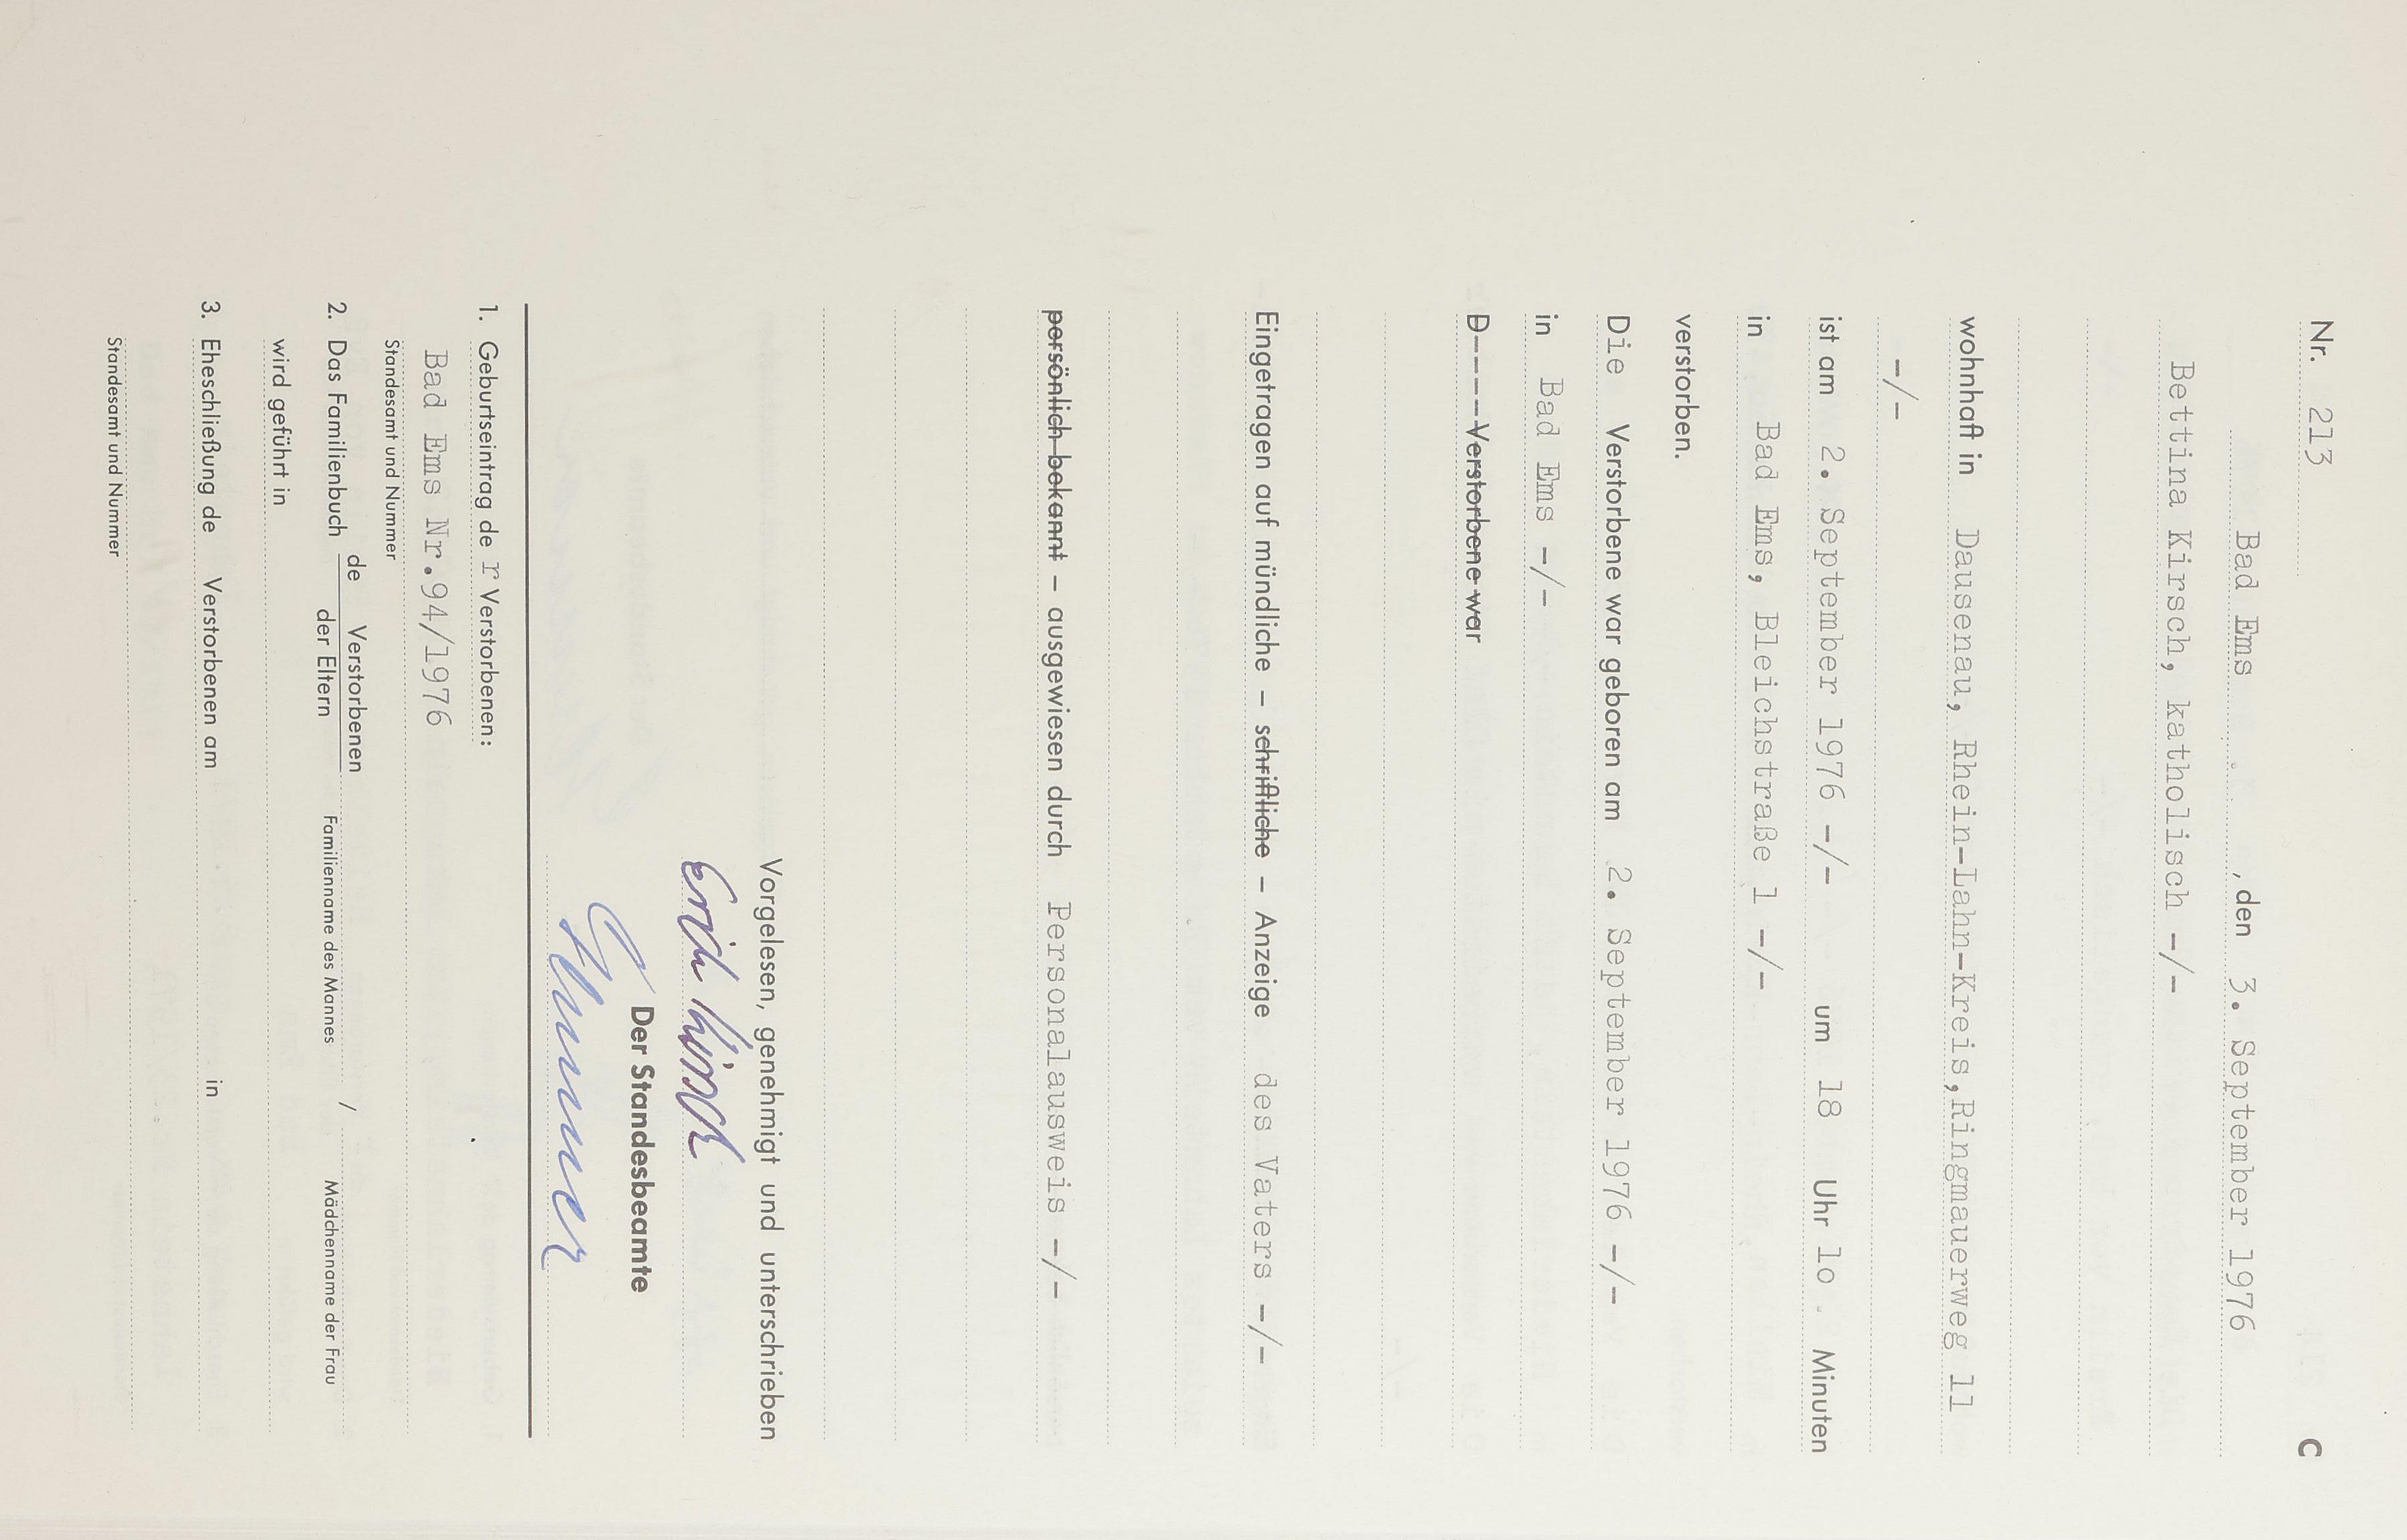 Nr. 213 C
Bad Ems , den 3. September 1976
Bettina Kirsch, katholisch -/-
wohnhaft in Dausenau, Rhein-Lahn-Kreis,Ringmauerweg 11
-/-
ist am 2. September 1976 -/- um 18 Uhr lo Minuten
in Bad Ems, Bleichstraße 1 -/-
verstorben.
Die Verstorbene war geboren am 2. September 1976 -/-
in Bad Ems -/-
D---- Verstorbene war
Eingetragen auf mündliche – schriftliche – Anzeige des Vaters -/-
persönlich bekannt – ausgewiesen durch Personalausweis -/-
Vorgelesen, genehmigt und unterschrieben
Erich Kirsch
Der Standesbeamte
1. Geburtseintrag de r Verstorbenen:
Bad Ems Nr.94/1976
Standesamt und Nummer
de Verstorbenen
2. Das Familienbuch
der Eltern
/
Familienname des Mannes Mädchenname der Frau
wird geführt in
3. Eheschließung de Verstorbenen am in
Standesamt und Nummer